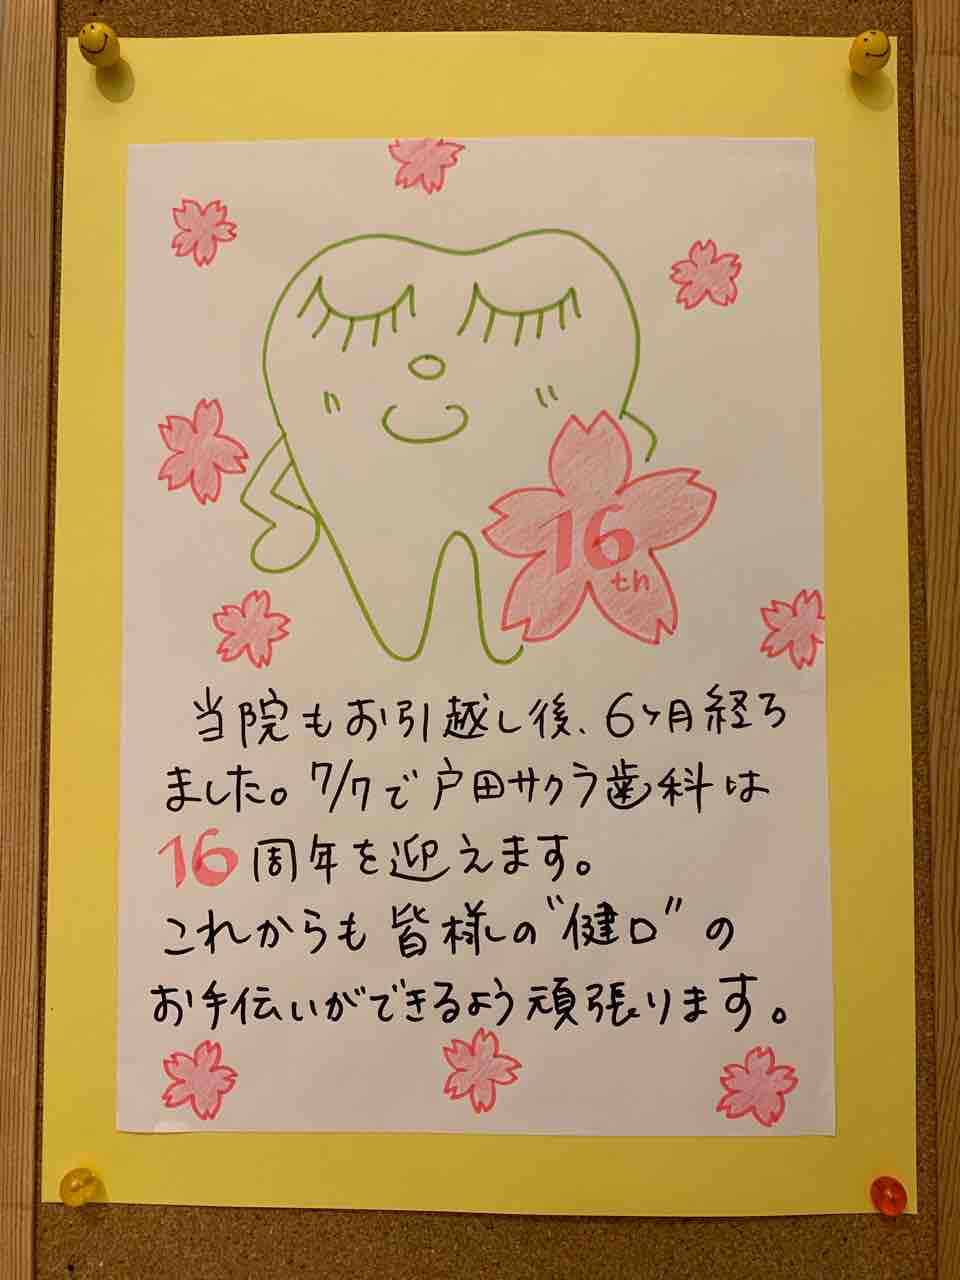 16
th
当院もお引越し後、6ヶ月経ろ
ました。7/7で戸田サクラ歯科は
16周年を迎えます。
これからも皆様の"健口"の
お手伝いができるよう頑張ります。